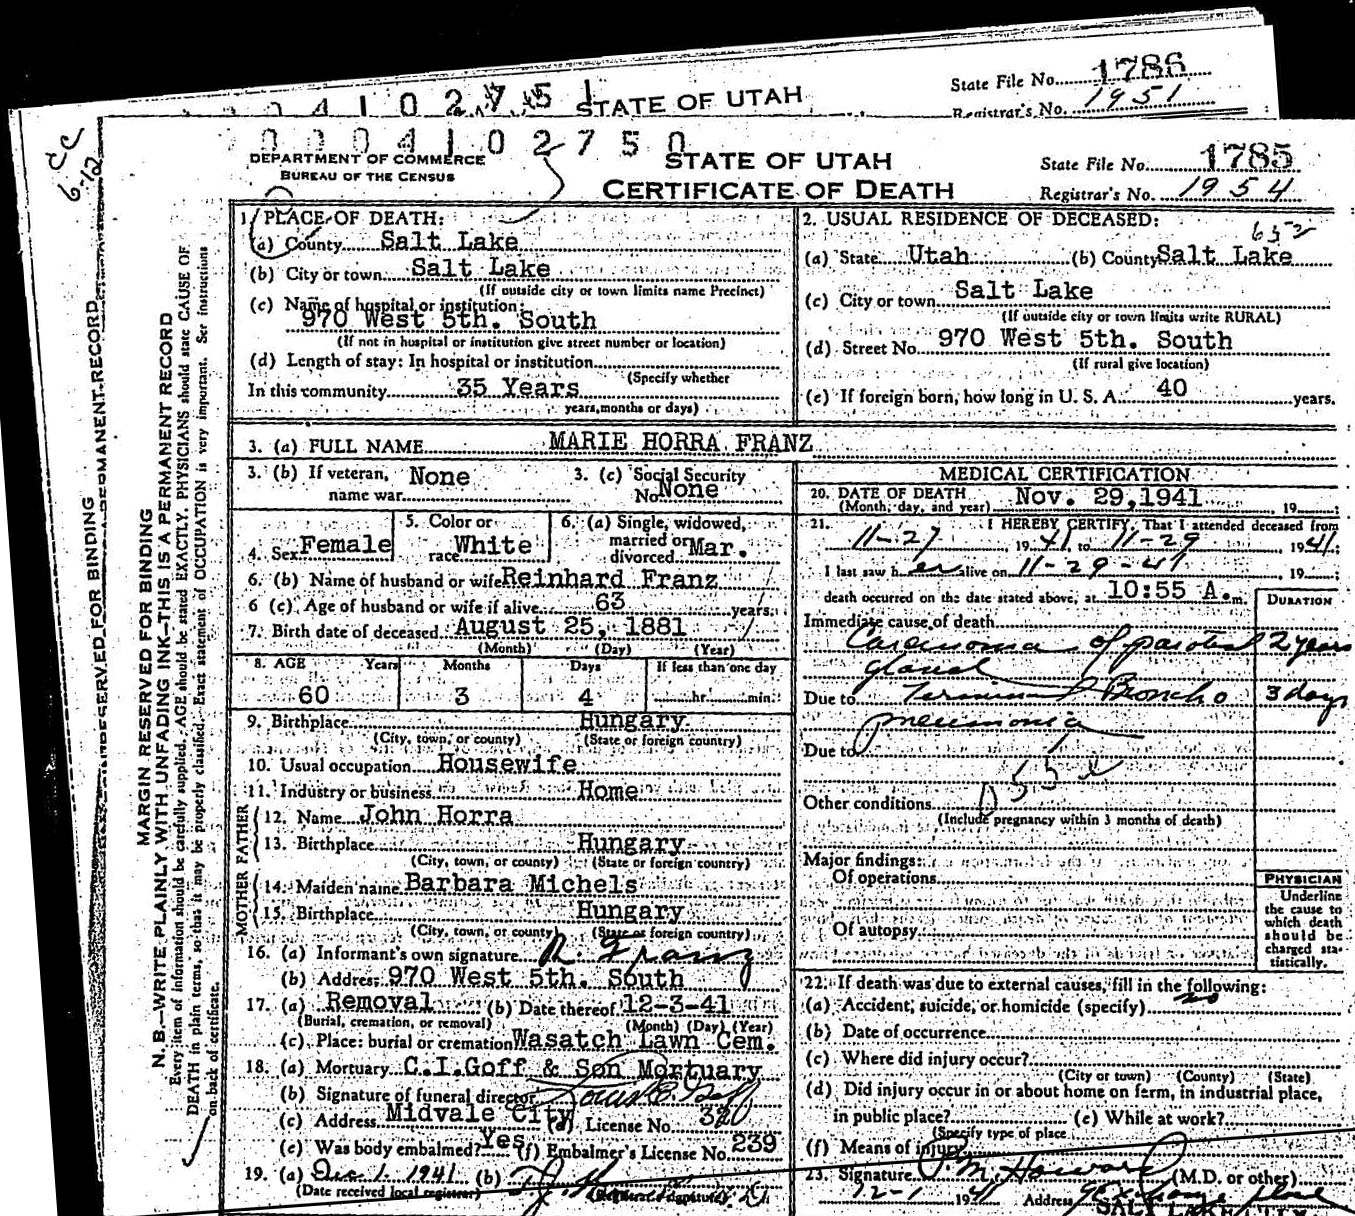 0 0 0 4 1 0 2 7 5 1 STATE OF UTAH
State File No. 1786
Registrar's No. 1951
CC
6-12
0 0 0 4 1 0 2 7 5 0
DEPARTMENT OF COMMERCE
BUREAU OF THE CENSUS
STATE OF UTAH
CERTIFICATE OF DEATH
State File No. 1785
Registrar's No. 1954
RESERVED FOR BINDING
PERMANENT RECORD
MARGIN RESERVED FOR BINDING
N. B.—WRITE PLAINLY WITH UNFADING INK—THIS IS A PERMANENT RECORD
Every item of information should be carefully supplied. AGE should be stated EXACTLY. PHYSICIANS should state CAUSE OF
DEATH in plain terms, so that it may be properly classified. Exact statement of OCCUPATION is very important. See instructions
on back of certificate.
1. PLACE OF DEATH:
(a) County Salt Lake
(b) City or town Salt Lake
(If outside city or town limits name Precinct)
(c) Name of hospital or institution:
970 West 5th. South
(If not in hospital or institution give street number or location)
(d) Length of stay: In hospital or institution
(Specify whether
In this community 35 Years
years, months or days)
2. USUAL RESIDENCE OF DECEASED:
652
(a) State Utah (b) County Salt Lake
(c) City or town Salt Lake
(If outside city or town limits write RURAL)
(d) Street No. 970 West 5th. South
(If rural give location)
(e) If foreign born, how long in U. S. A. 40 years.
3. (a) FULL NAME MARIE HORRA FRANZ
3. (b) If veteran, name war None
3. (c) Social Security No. None
4. Sex Female
5. Color or race White
6. (a) Single, widowed, married or divorced Mar.
6. (b) Name of husband or wife Reinhard Franz
6 (c) Age of husband or wife if alive 63 years.
7. Birth date of deceased August 25, 1881
(Month) (Day) (Year)
8. AGE Years Months Days If less than one day
60 3 4 hr. min.
9. Birthplace Hungary
(City, town, or county) (State or foreign country)
10. Usual occupation Housewife
11. Industry or business Home
FATHER
12. Name John Horra
13. Birthplace Hungary
(City, town, or county) (State or foreign country)
MOTHER
14. Maiden name Barbara Michels
15. Birthplace Hungary
(City, town, or county) (State or foreign country)
16. (a) Informant's own signature R. Franz
(b) Address 970 West 5th. South
17. (a) Removal (b) Date thereof 12-3-41
(Burial, cremation, or removal) (Month) (Day) (Year)
(c) Place: burial or cremation Wasatch Lawn Cem.
18. (a) Mortuary C.I.Goff & Son Mortuary
(b) Signature of funeral director
(c) Address Midvale City (d) License No. 320
(e) Was body embalmed? Yes (f) Embalmer's License No. 239
19. (a) Dec 1. 1941 (b)
(Date received local registrar)
MEDICAL CERTIFICATION
20. DATE OF DEATH Nov. 29,1941 19
(Month, day, and year)
21. I HEREBY CERTIFY, That I attended deceased from
11-27, 1941, to 11-29, 1941;
I last saw her alive on 11-29-41, 19
death occurred on the date stated above, at 10:55 A.m.
DURATION
Immediate cause of death
Carcinoma of parotid 2 years
gland
Due to Terminal Broncho 3 days
pneumonia
Due to
Other conditions
(Include pregnancy within 3 months of death)
Major findings:
Of operations
Of autopsy
PHYSICIAN
Underline
the cause to
which death
should be
charged sta-
tistically.
22. If death was due to external causes, fill in the following:
(a) Accident, suicide, or homicide (specify) no
(b) Date of occurrence
(c) Where did injury occur?
(City or town) (County) (State)
(d) Did injury occur in or about home on farm, in industrial place,
in public place? (e) While at work?
(Specify type of place
(f) Means of injury
23. Signature (M.D. or other)
12-1 1941 Address